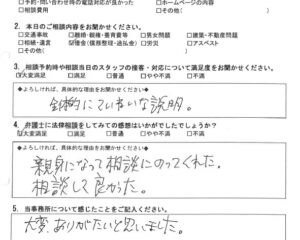 □予約・問い合わせ時の電話対応が良かった □ホームページの内容
□相談費用 □その他(
2. 本日のご相談内容をお聞かせください。
□交通事故 □離婚・親権・養育費等 □男女問題 □建築・不動産問題
□相続・遺言 ☑借金(債務整理・過払金) □労災 □アスベスト
□その他( )
3. 相談予約時や相談当日のスタッフの接客・対応について満足度をお聞かせください。
☑大変満足 □満足 □普通 □やや不満 □不満
◆よろしければ、具体的な理由をお聞かせください◆
全体的にていねいな説明。
4. 弁護士に法律相談をしてみての感想はいかがでしたでしょうか?
☑大変満足 □満足 □普通 □やや不満 □不満
◆よろしければ、具体的な理由をお聞かせください◆
親身になって相談にのってくれた。
相談して良かった。
5. 当事務所について感じたことをご記入ください。
大変、ありがたいと思いました。